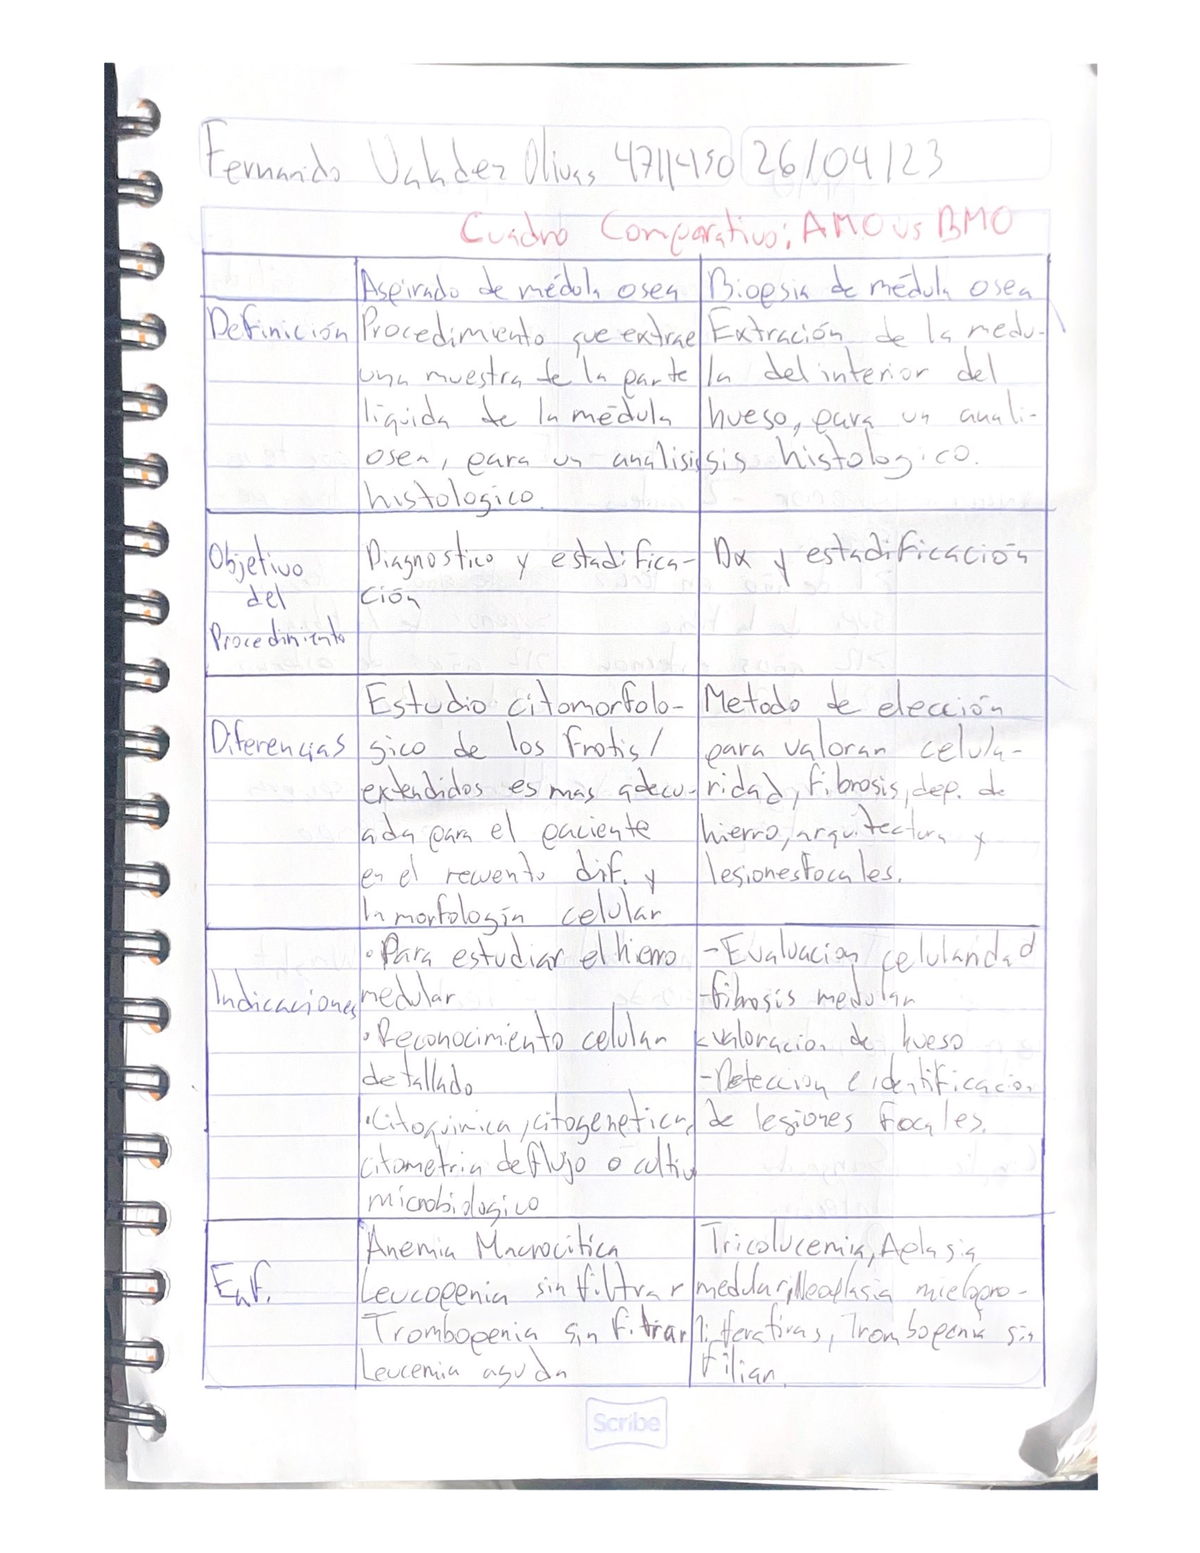 Fernando Valadez Olivas 4711450 26/04/23
Cuadro Comparativo: AMO vs BMO
Aspirado de médula osea
Biopsia de médula osea
Definición
Procedimiento que extrae
una muestra de la parte
liquida de la médula
osea, para un analisis
histologico.
Extración de la medu-
la del interior del
hueso, para un anali-
sis histologico.
Objetivo
del
Procedimiento
Diagnostico y estadifica-
ción
Dx y estadificación
Diferencias
Estudio citomorfolo-
gico de los frotis/
extendidos es mas adecu-
ada para el paciente
en el recuento dif. y
la morfología celular
Metodo de elección
para valorar celula-
ridad, fibrosis, dep. de
hierro, arquitectura y
lesiones focales.
Indicaciones
• Para estudiar el hierro
medular
• Reconocimiento celular
detallado
• Citoquinica, citogenetica,
citometria de flujo o cultivo
microbiologico
- Evaluacion celularidad
- fibrosis medular
- valoracion de hueso
- Deteccion e identificacion
de lesiones focales.
Enf.
Anemia Macrocitica
Leucopenia sin filtrar
Trombopenia sin filtrar
Leucemia aguda
Tricolucemia, Aplasia
medular, Neoplasia mielopro-
liferativas, Trombopenia sin
filian.
Scribe